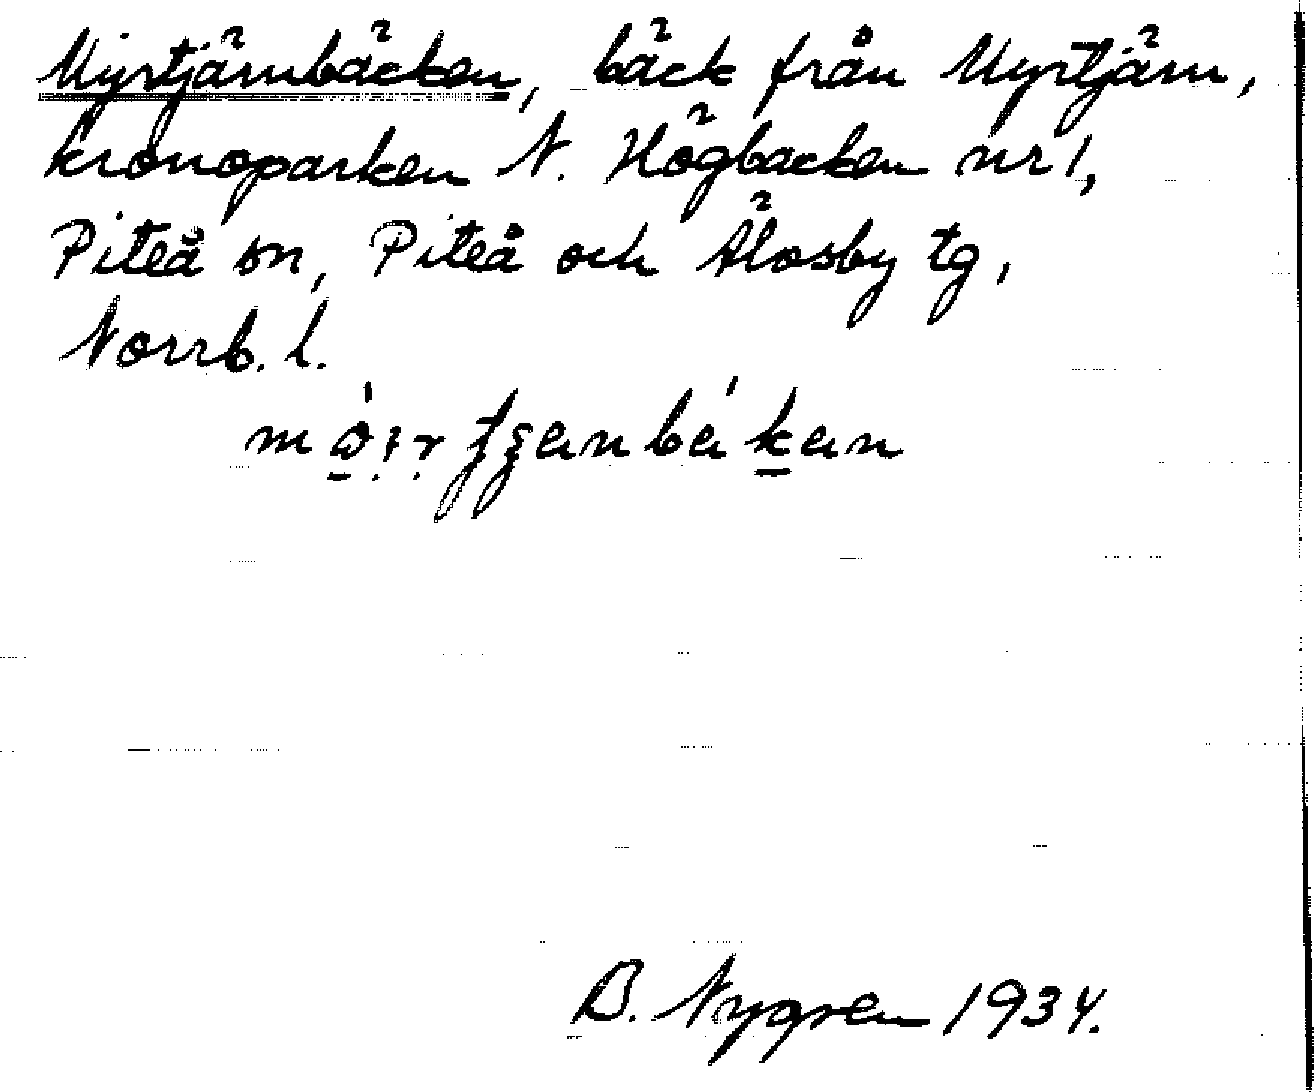 Myrtjärnbäcken, bäck från Myrtjärn,
kronoparken N. Högbacken nr 1,
Piteå sn, Piteå och Älvsby tg,
Norrb. l.
B. Nygren 1934.